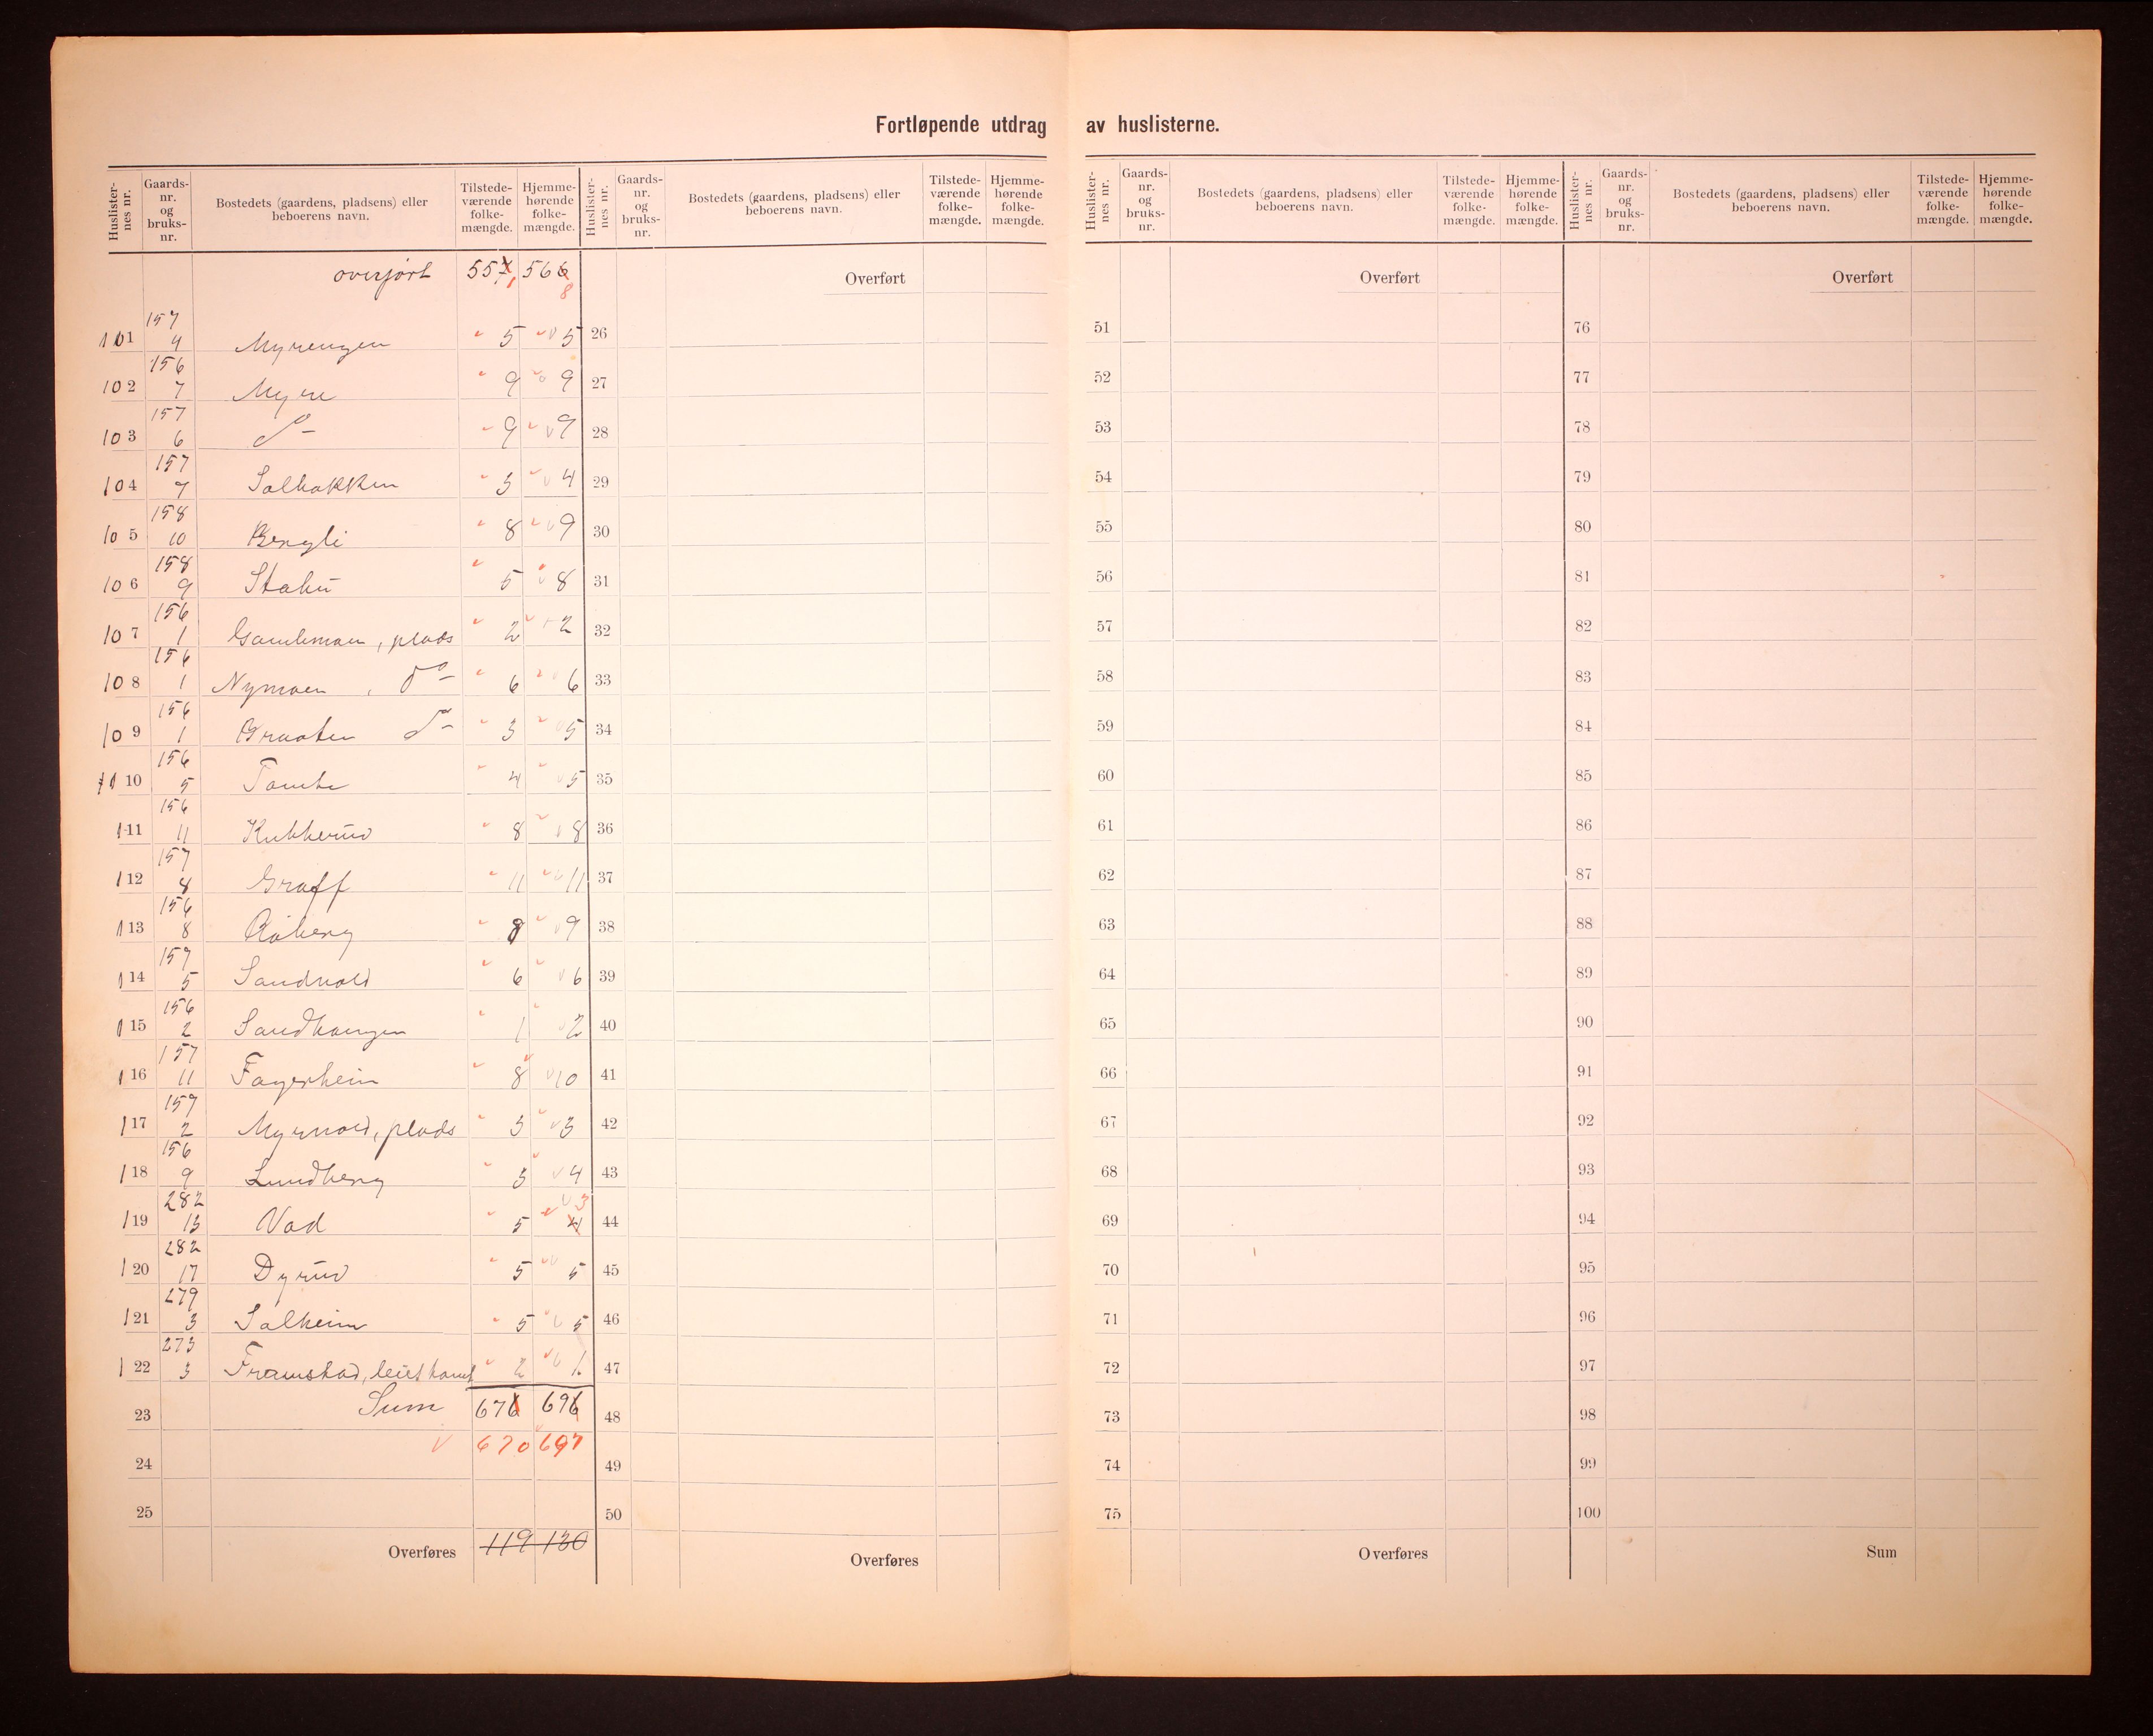 Fortløpende utdrag av huslisterne.
Huslister-nes nr. Gaards-nr. og bruks-nr. Bostedets (gaardens, pladsens) eller beboerens navn. Tilstede-værende folke-mængde. Hjemme-hørende folke-mængde. Huslister-nes nr. Gaards-nr. og bruks-nr. Bostedets (gaardens, pladsens) eller beboerens navn. Tilstede-værende folke-mængde. Hjemme-hørende folke-mængde.
Huslister-nes nr. Gaards-nr. og bruks-nr. Bostedets (gaardens, pladsens) eller beboerens navn. Tilstede-værende folke-mængde. Hjemme-hørende folke-mængde. Huslister-nes nr. Gaards-nr. og bruks-nr. Bostedets (gaardens, pladsens) eller beboerens navn. Tilstede-værende folke-mængde. Hjemme-hørende folke-mængde.
overført 551 568 Overført Overført Overført
101 157 4 Myrengen 5 5 26 51 76
102 156 7 Myre 9 9 27 52 77
103 157 6 do 9 9 28 53 78
104 157 7 Solbakken 3 4 29 54 79
105 158 10 Bergli 8 9 30 55 80
106 158 9 Stabu 5 8 31 56 81
107 156 1 Gamlemoen, plads 2 2 32 57 82
108 156 1 Nymoen, do 6 6 33 58 83
109 156 1 Braaten do 3 5 34 59 84
110 156 5 Tomte 4 5 35 60 85
111 156 11 Kubberud 8 8 36 61 86
112 157 8 Graff 11 11 37 62 87
113 156 8 Aaberg 8 9 38 63 88
114 157 5 Sandvold 6 6 39 64 89
115 156 2 Sandhaugen 1 2 40 65 90
116 157 11 Fagerheim 8 10 41 66 91
117 157 2 Myrvold, plads 3 3 42 67 92
118 156 9 Lundberg 3 4 43 68 93
119 282 15 Vad 5 4 3 44 69 94
120 282 17 Dyrud 5 5 45 70 95
121 279 3 Solheim 5 5 46 71 96
122 273 3 Framstad, leiet 2 1 47 72 97
23 Sum 676 696 48 73 98
24 670 697 49 74 99
25 50 75 100
Overføres 119 130 Overføres Overføres Sum